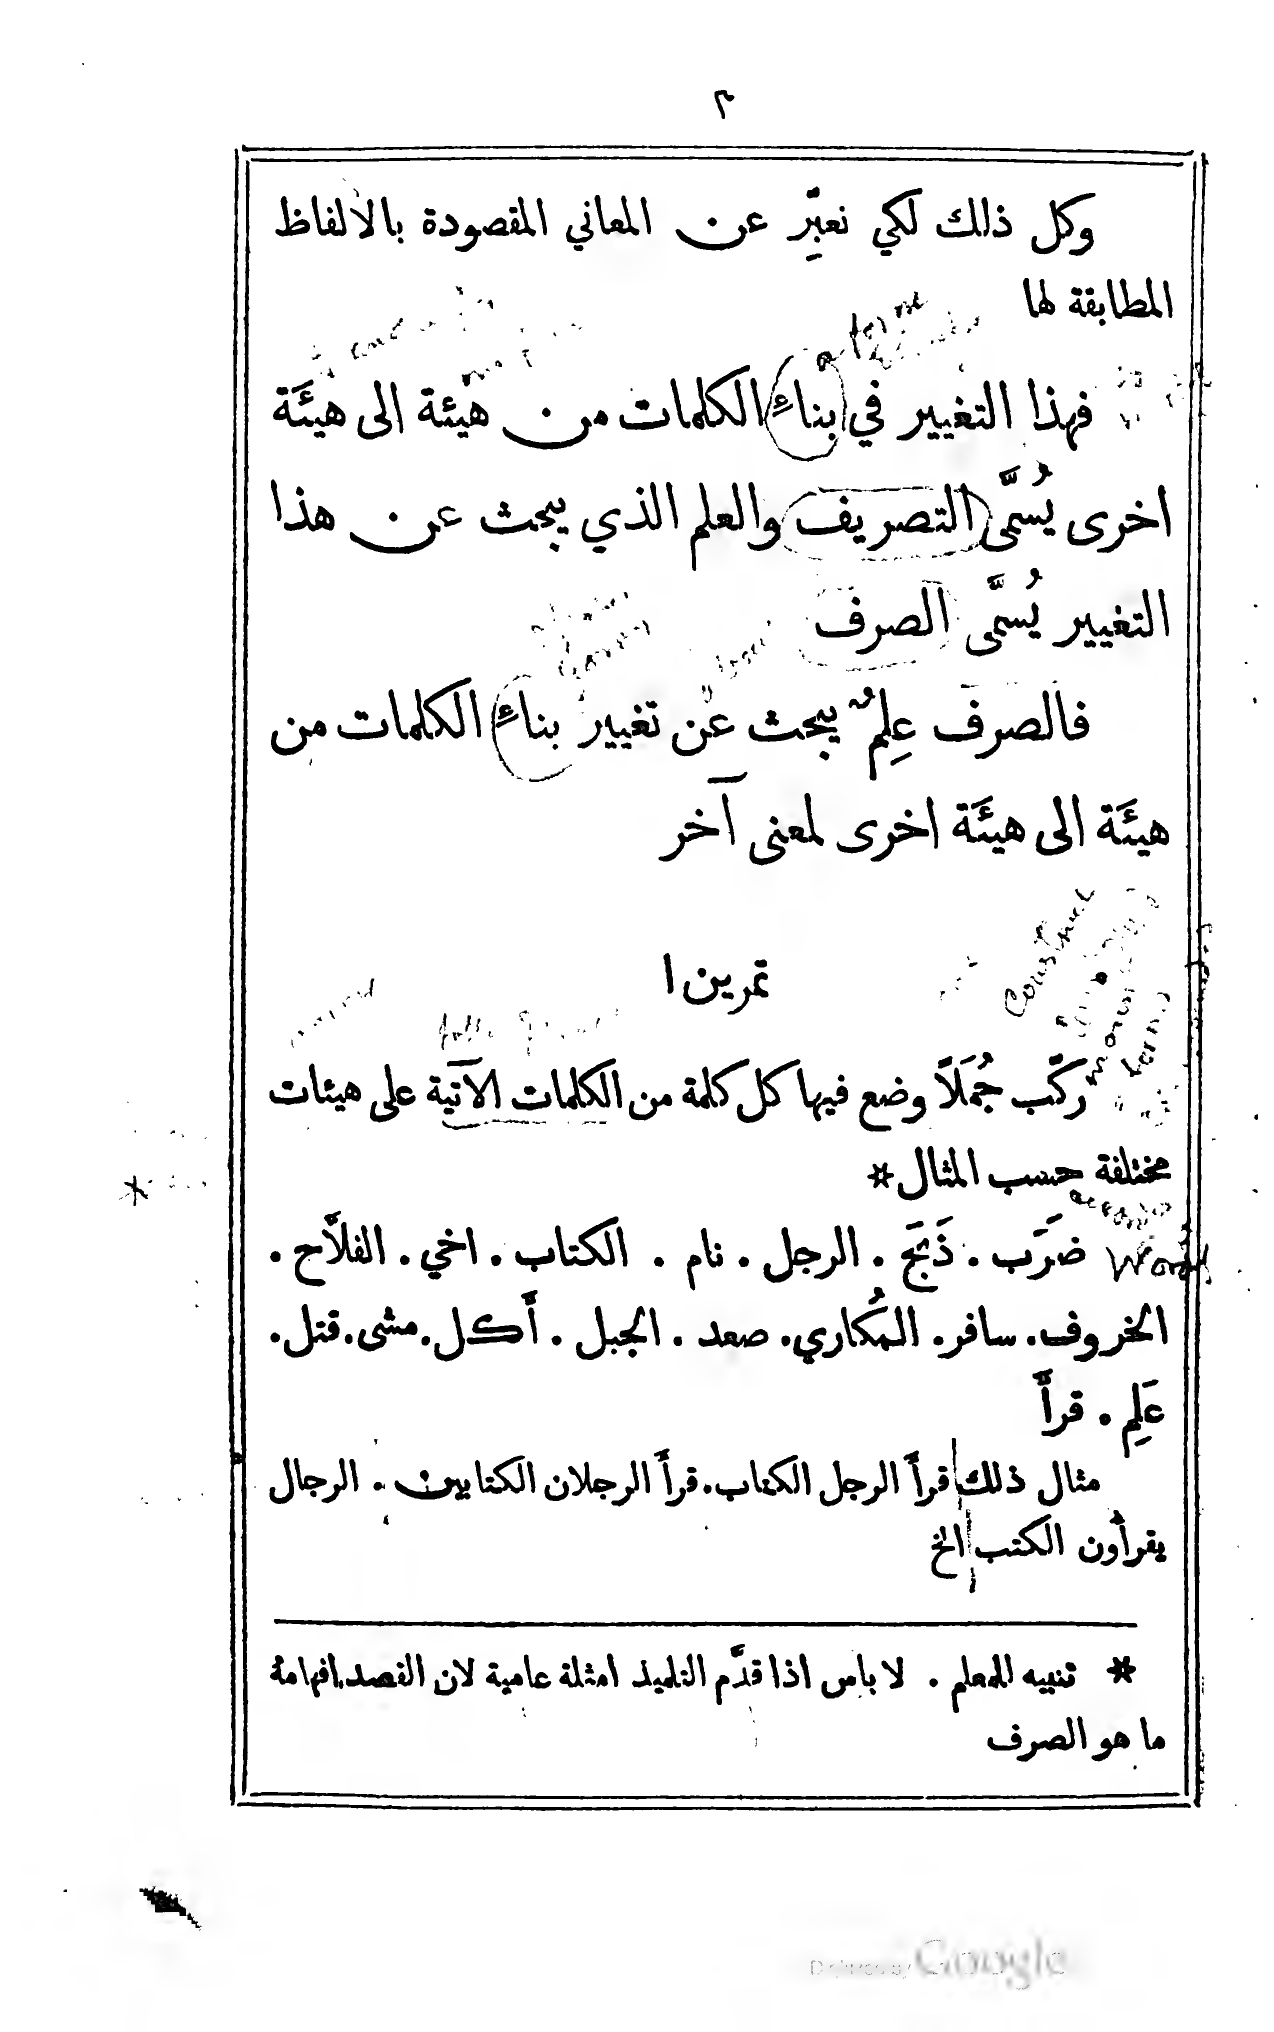 ٢
وكل ذلك لكي نعبِّر عن المعاني المقصودة بالالفاظ
المطابقة لها
فهذا التغيير في بناءِ الكلمات من هيئة الى هيئَة
اخرى يُسمَّى التصريف والعلم الذي يبحث عن هذا
التغيير يُسمَّى الصرف
فالصرف عِلمٌ يبحث عن تغيير بناءِ الكلمات من
هيئَة الى هيئَة اخرى لمعنى آخر
تمرين ١
Construct
ركّب جُمَلاً وضع فيها كل كلمة من الكلمات الآتية على هيئات
مختلفة حسب المثال*
ضرَب . ذَبَحَ . الرجل . نام . الكتاب . اخي . الفلاَّح .
الخروف. سافر. المُكاري. صعد . الجبل . أَكل. مشى. قتل.
عَلِم . قرأَ
مثال ذلك قرأَ الرجل الكتاب. قرأَ الرجلان الكتابين . الرجال
يقرأُون الكتب الخ
* تنبيه للمعلم . لا باس اذا قدَّم التلميذ امثلة عامية لان القصد افهامهُ
ما هو الصرف
Digitized by Google